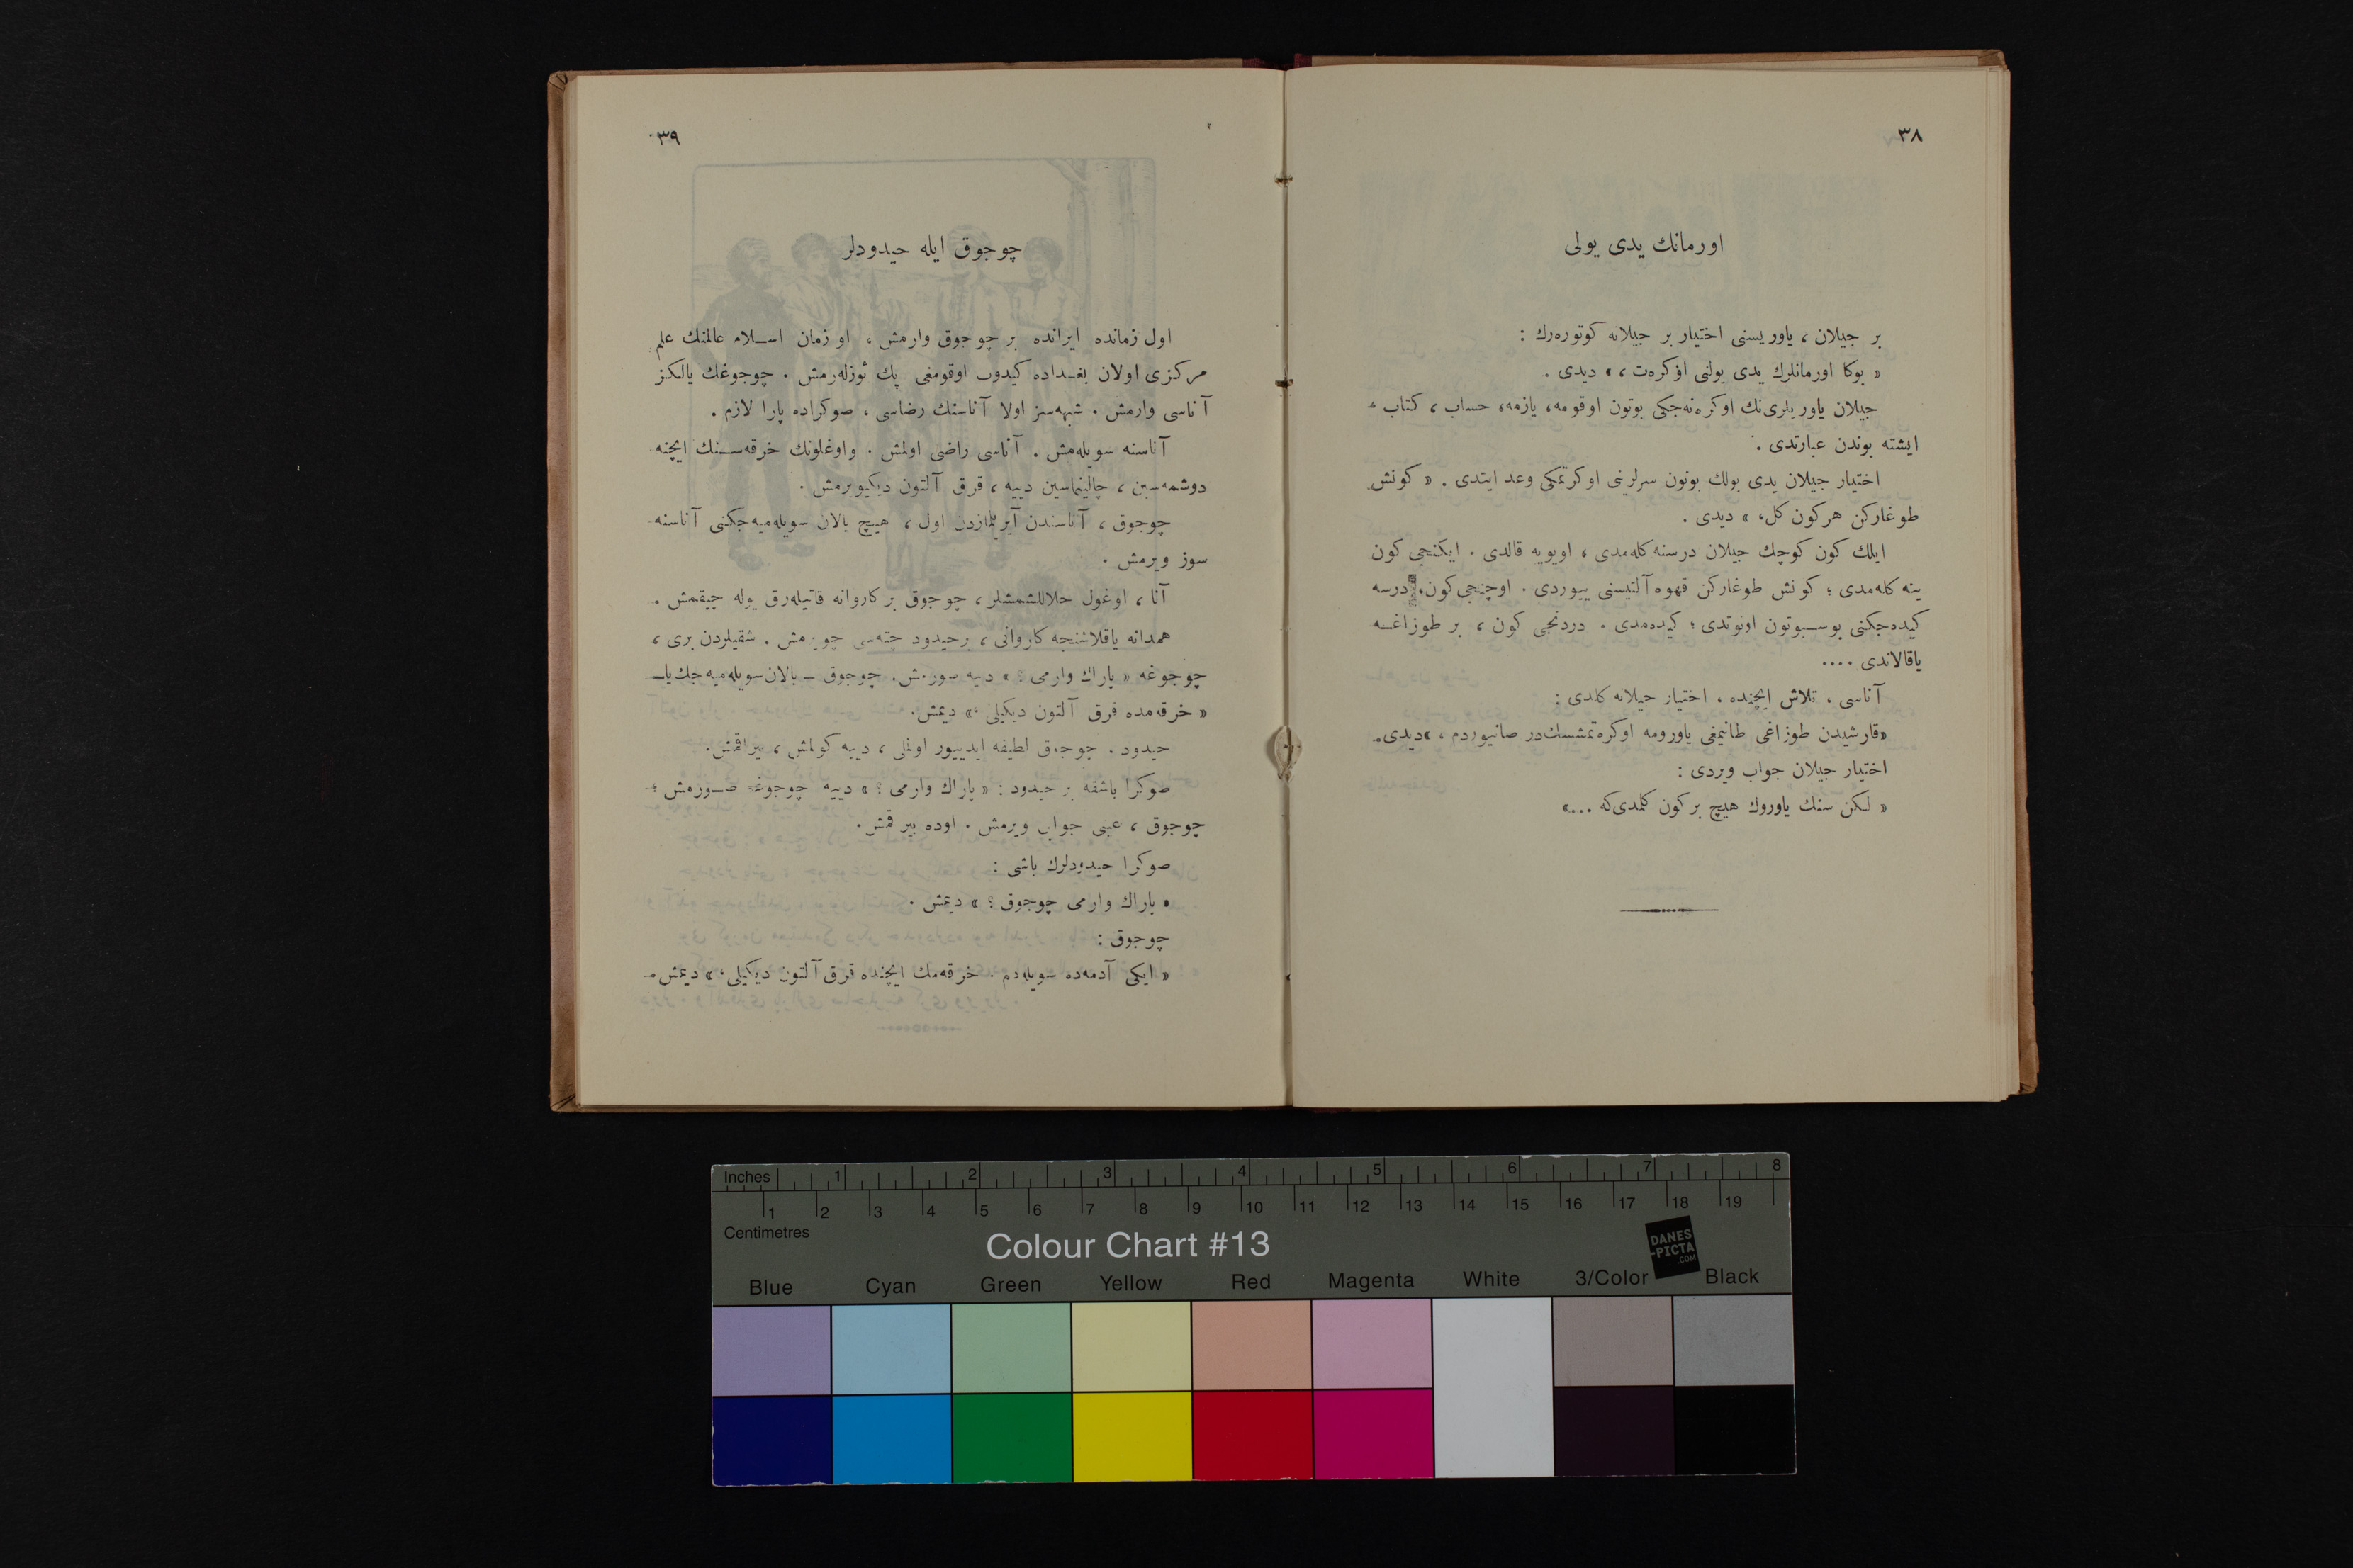 ٣٨
اورمانك يدى يولى
بر جيلان ، ياوريسنى اختيار بر جيلانه كوتوره‌رك :
« بوكا اورمانلرك يدى يولنى اوٴكره‌ت ، » ديدى .
جيلان ياوريلرى‌نك اوكره‌نه‌جكى بوتون اوقومه ، يازمه ، حساب ، كتاب .
ايشته بوندن عبارتدى .
اختيار جيلان يدى يولك بوتون سرلرينى اوكرتمكى وعد ايتدى . « كونش
طوغاركن هركون كل ، » ديدى .
ايلك كون كوچك جيلان درسنه كله‌مدى ، اويويه قالدى . ايكنجى كون
ينه كله‌مدى ؛ كونش طوغاركن قهوه آلتيسنى ييوردى . اوچنجى كون ، درسه
كيده‌جكنى بوسبوتون اونوتدى ؛ كيده‌مدى . دردنجى كون ، بر طوزاغه
ياقالاندى ....
آناسى ، تلاش ايچنده ، اختيار جيلانه كلدى :
« قارشيدن طوزاغى طانيمغى ياورومه اوكره‌تمشسك‌در صانيوردم ، » ديدى .
اختيار جيلان جواب ويردى :
« لكن سنك ياوروك هيچ بر كون كلمدى‌كه ... »
٣٩
چوجوق ايله حيدودلر
اول زمانده ايرانده بر چوجوق وارمش ، او زمان اسلام عالمنك علم
مركزى اولان بغداده كيدوب اوقومغى پك ئوزله‌رمش . چوجوغك يالكز
آناسى وارمش . شبهه‌سز اولا آناسنك رضاسى ، صوكراده پارا لازم .
آناسنه سويله‌مش . آناسى راضى اولمش . واوغلونك خرقه‌سنك ايچنه
دوشمه‌سين ، چالينماسين دييه ، قرق آلتون ديكيويرمش .
چوجوق ، آناسندن آيريلمازدن اول ، هيچ يالان سويله‌ميه‌جكنى آناسنه
سوز ويرمش .
آنا ، اوغول حلاللشمشلر ، چوجوق بر كاروانه قاتيله‌رق يوله چيقمش .
همدانه ياقلاشنجه كاروانى ، بر حيدود چته‌سى چويرمش . شقيلردن برى ،
چوجوغه « پاراك وارمى ؟ » دييه صورمش . چوجوق ـ يالان سويله‌ميه‌جك يا ـ
« خرقه‌مده قرق آلتون ديكيلى ، » ديمش .
حيدود . چوجوق لطيفه ايدييور اولملى ، دييه كولمش ، بيراقمش .
صوكرا باشقه بر حيدود : « پاراك وارمى ؟ » دييه چوجوغه صورمش ؛
چوجوق ، عينى جوابى ويرمش . اوده بيراقمش .
صوكرا حيدودلرك باشى :
« پاراك وارمى چوجوق ؟ » ديمش .
چوجوق :
« ايكى آدمه‌ده سويله‌دم . خرقه‌مك ايچنده قرق آلتون ديكيلى ، » ديمش .
Inches 1 2 3 4 5 6 7 8
1 2 3 4 5 6 7 8 9 10 11 12 13 14 15 16 17 18 19
Centimetres
Colour Chart #13
DANES
-PICTA
.COM
Blue Cyan Green Yellow Red Magenta White 3/Color Black